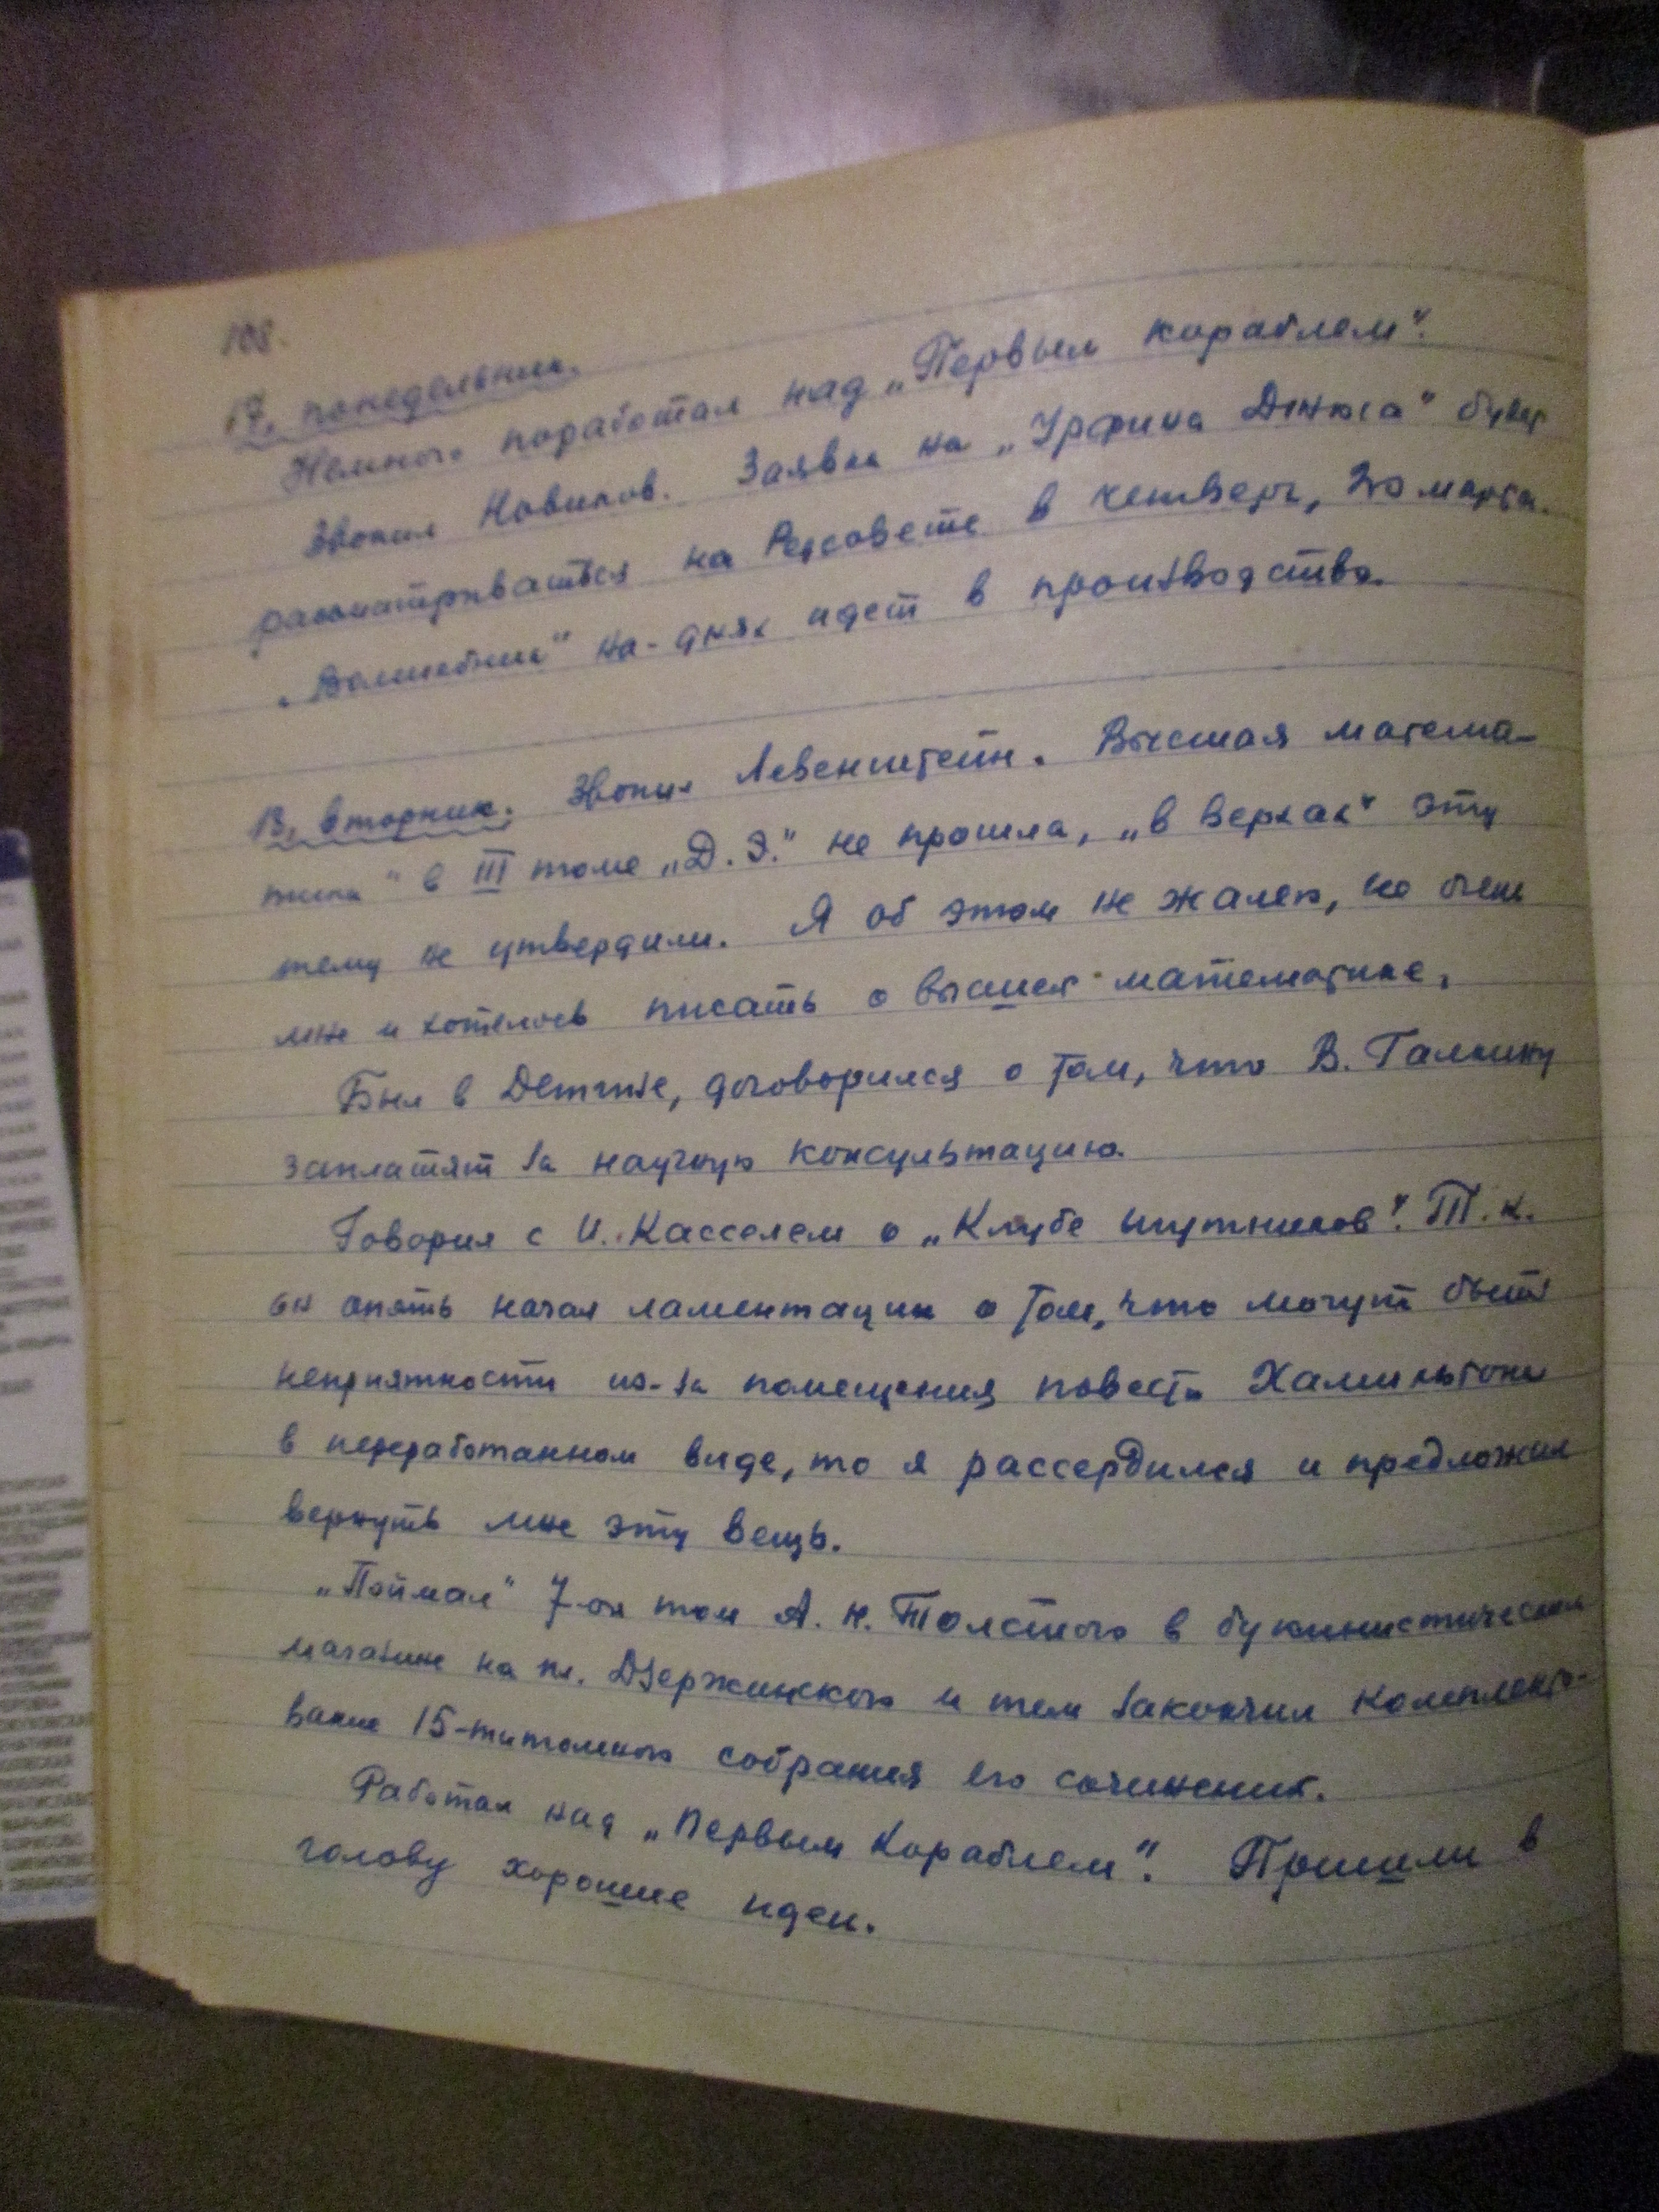 108.
17, понедельник.
Немного поработал над „Первым кораблем“.
Звонил Новиков. Заявка на „Урфина Джюса“ будет
рассматриваться на Редсовете в четверг, 20 марта.
„Волшебник“ на-днях идет в производство.
18, вторник. Звонил Левенштейн. Высшая матема-
тика“ в III томе „Д. Э.“ не прошла, „в верхах“ эту
тему не утвердили. Я об этом не жалею, не очень
мне и хотелось писать о высшей математике.
Был в Детгизе, договорился о том, что В. Галкину
заплатят за научную консультацию.
Говорил с И. Касселем о „Клубе спутников“. Т. к.
он опять начал ламентации о том, что могут быть
неприятности из-за помещения повести Хамильтона
в переработанном виде, то я рассердился и предложил
вернуть мне эту вещь.
„Поймал“ 7-ой том А. Н. Толстого в букинистическом
магазине на пл. Дзержинского и тем закончил комплекто-
вание 15-титомного собрания его сочинений.
Работал над „Первым кораблем“. Пришли в
голову хорошие идеи.